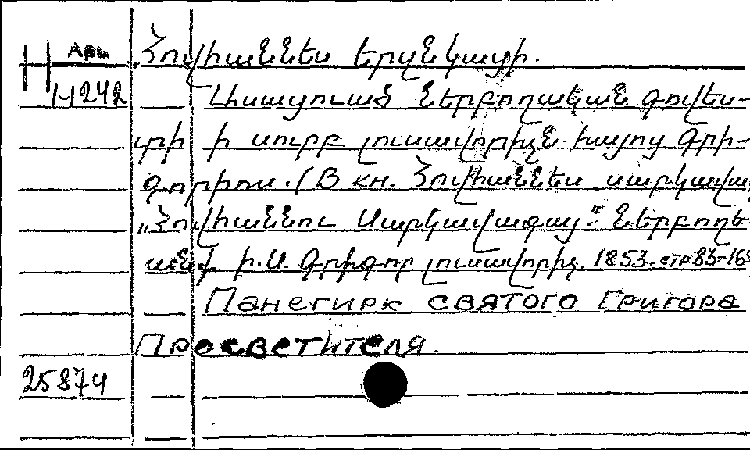 Арм
Н
Н242
Հովհաննես Երզնկացի.
Ասացուած ներբողական գովես-
տի ի սուրբ լուսավորիչն հայոց Գրի-
գորիոս. (В кн. Հովհաննես սարկավագ
„Հովհաննու Սարկավագայ“ Ներբողե
Ս. Գրիգոր լուսավորիչ. 1853. стр 83-16
Панегирк святого Григора
Просветителя.
25874